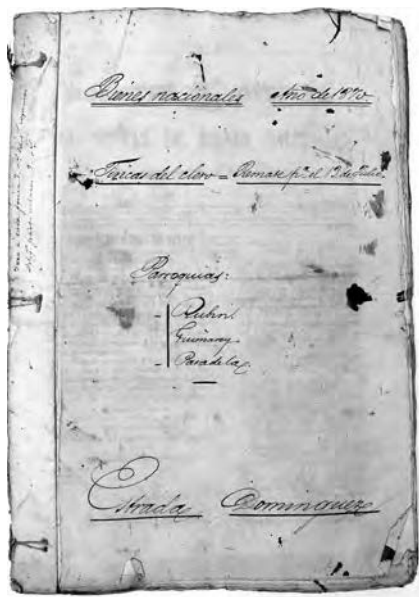 Bienes nacionales Año de 1870.
Fincas del clero = Remate pª el 13 de Julio.
Parroquias:
- Rubin.
Guimarey.
- Paradela.
Estrada Dominguez